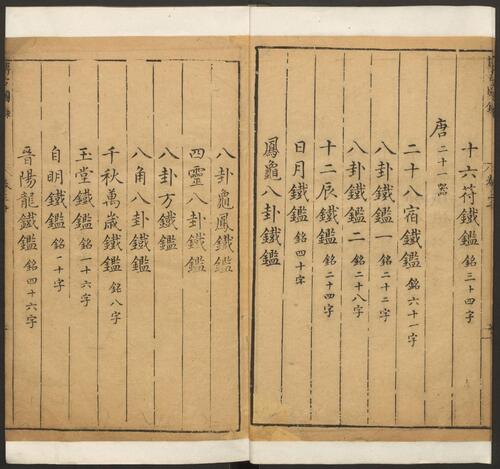 十六符鐵鑑 銘三十四字
唐 二十一器
二十八宿鐵鑑 銘六十一字
八卦鐵鑑一 銘二十二字
八卦鐵鑑二 銘二十八字
十二辰鐵鑑 銘二十四字
日月鐵鑑 銘四十字
鳳龜八卦鐵鑑
八卦龜鳳鐵鑑
四靈八卦鐵鑑
八卦方鐵鑑
八角八卦鐵鑑
千秋萬歲鐵鑑 銘八字
玉堂鐵鑑 銘一十六字
自明鐵鑑 銘一十字
晉陽龍鐵鑑 銘四十六字